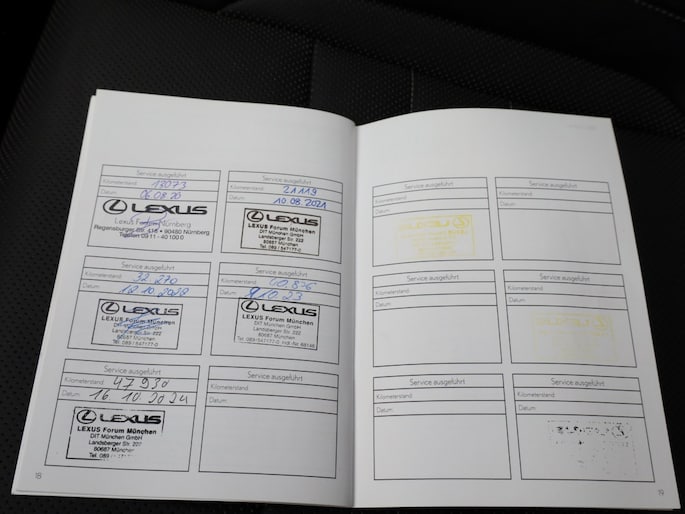 Service ausgeführt
Kilometerstand: 13073
Datum: 06.08.20
LEXUS
Lexus Forum Nürnberg
Regensburger Str. 416 • 90480 Nürnberg
Telefon 09 11 - 40 100 0
Service ausgeführt
Kilometerstand: 21119
Datum: 10.08.2021
LEXUS
LEXUS Forum München
DIT München GmbH
Landsberger Str. 222
80687 München
Tel. 089 / 547177-0
Service ausgeführt
Kilometerstand: 32 270
Datum: 18.10.2022
LEXUS
LEXUS Forum München
DIT München GmbH
Landsberger Str. 222
80687 München
Tel. 089 / 547177-0
Service ausgeführt
Kilometerstand: 40.876
Datum: 9.10.23
LEXUS
LEXUS Forum München
DIT München GmbH
Landsberger Str. 222
80687 München
Tel. 089/547177-0
Service ausgeführt
Kilometerstand: 47930
Datum: 16.10.2024
LEXUS
LEXUS Forum München
DIT München GmbH
Landsberger Str. 222
80687 München
Tel. 089
Service ausgeführt
Kilometerstand:
Datum:
18
Service ausgeführt
Kilometerstand:
Datum:
LEXUS
Service ausgeführt
Kilometerstand:
Datum:
Service ausgeführt
Kilometerstand:
Datum:
Service ausgeführt
Kilometerstand:
Datum:
LEXUS
Service ausgeführt
Kilometerstand:
Datum:
Service ausgeführt
Kilometerstand:
Datum:
19